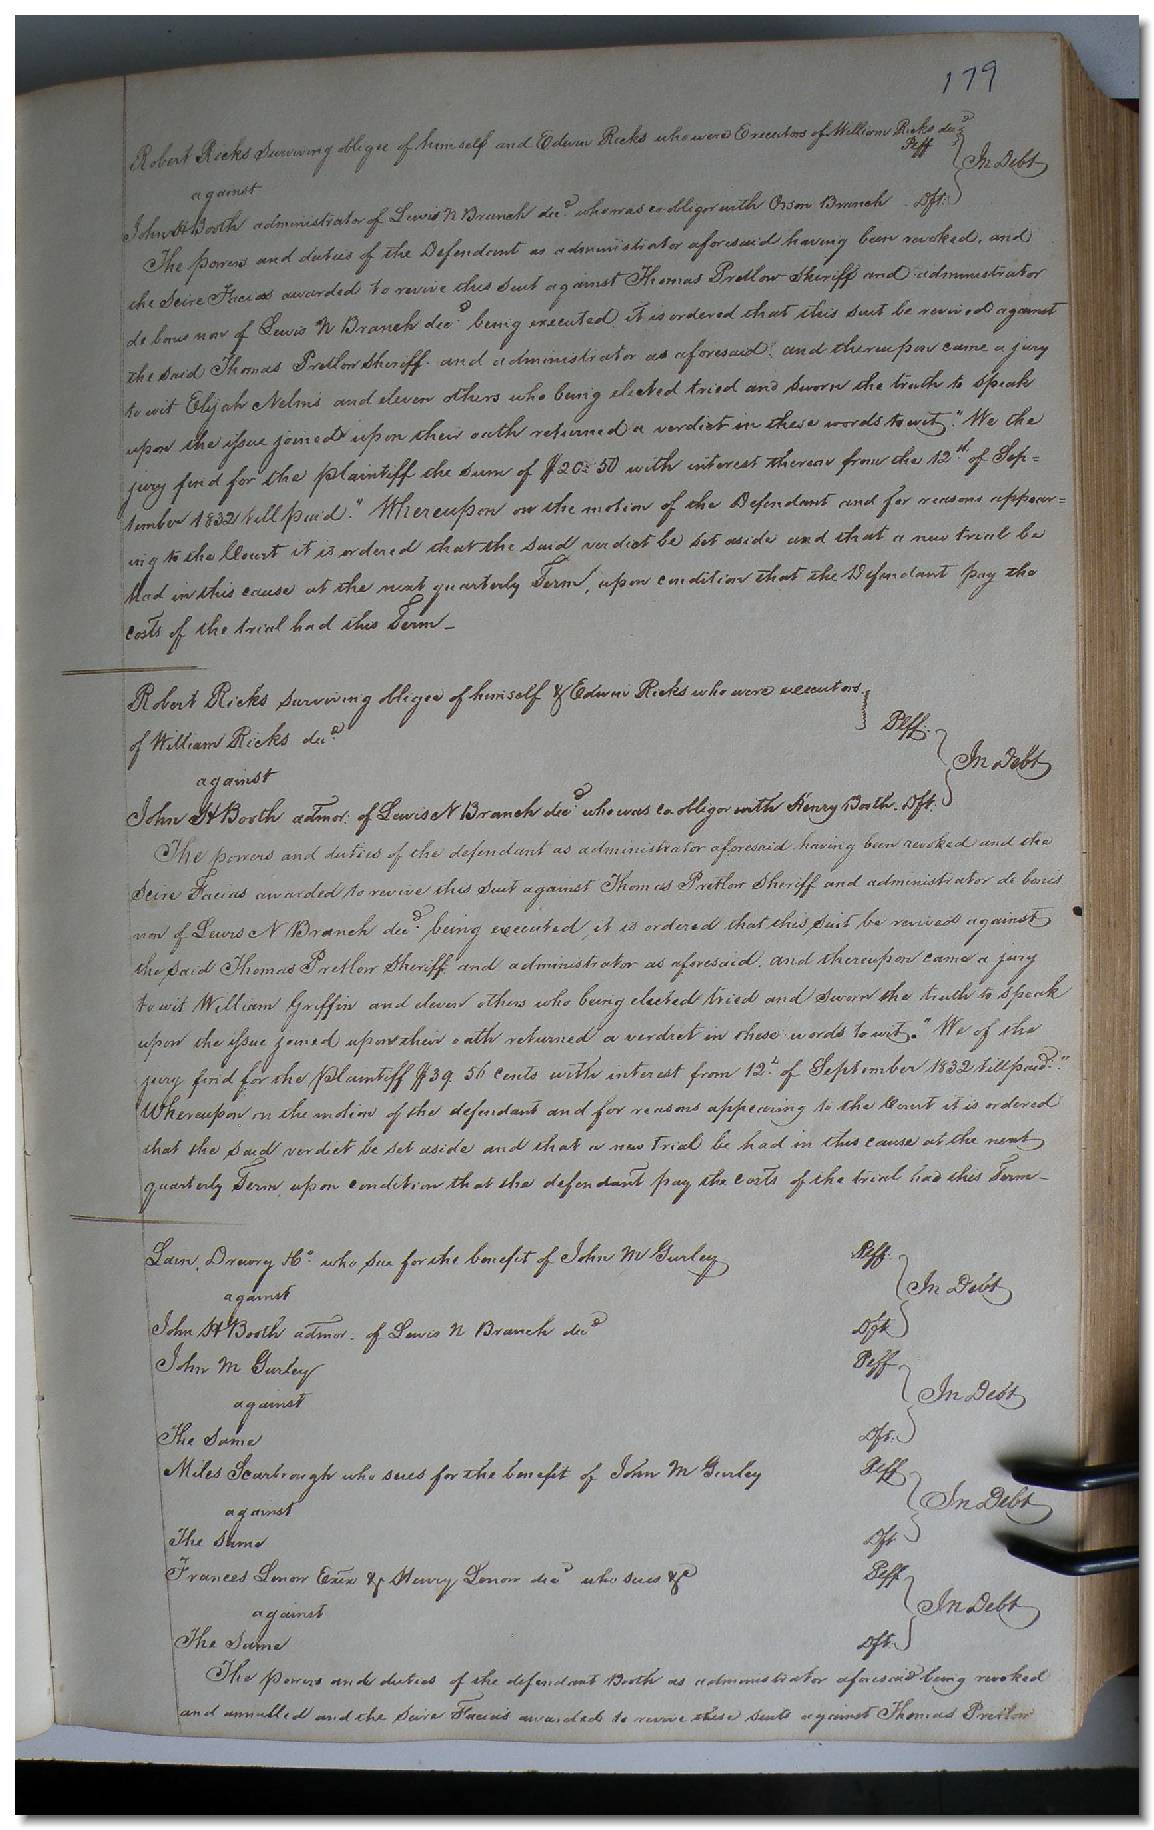 179
Robert Ricks Surviving obligee of himself and Edwin Ricks who were Executors of William Ricks decd
Plff
In Debt
against
John H Booth administrator of Lewis N Branch decd who was co obligor with Orson Branch Dft.
The powers and duties of the Defendant as administrator aforesaid having been revoked, and
the Scire Facias awarded to revive this suit against Thomas Pretlow Sheriff and administrator
de bonis non of Lewis N Branch decd being executed, it is ordered that this suit be revived against
the said Thomas Pretlow Sheriff and administrator as aforesaid: and thereupon came a jury
to wit Elijah Nelms and eleven others who being elected tried and sworn the truth to speak
upon the issue joined upon their oath returned a verdict in these words to wit. "We the
jury find for the plaintiff the sum of $20 50 with interest thereon from the 12th of Sep=
tember 1832 till paid." Whereupon on the motion of the Defendant and for reasons appear=
ing to the Court it is ordered that the said verdict be set aside and that a new trial be
had in this cause at the next quarterly Term, upon condition that the Defendant pay the
costs of the trial had this Term_
Robert Ricks surviving obligee of himself & Edwin Ricks who were executors
of William Ricks decd
Plff.
against
In Debt
John H Booth admor. of Lewis N Branch decd who was co obligor with Henry Booth. Dft.
The powers and duties of the defendant as administrator aforesaid having been revoked and the
Scire Facias awarded to revive this suit against Thomas Pretlow Sheriff and administrator de bonis
non of Lewis N Branch decd being executed, it is ordered that this suit be revived against
the said Thomas Pretlow Sheriff and administrator as aforesaid. and thereupon came a jury
to wit William Griffin and eleven others who being elected tried and sworn the truth to speak
upon the issue joined upon their oath returned a verdict in these words to wit. "We of the
jury find for the plaintiff $39. 56 cents with interest from 12th of September 1832 till paid."
Whereupon on the motion of the defendant and for reasons appearing to the Court it is ordered
that the said verdict be set aside and that a new trial be had in this cause at the next
quarterly Term, upon condition that the defendant pay the costs of the trial had this Term_
Lain, Drewry &Co who sue for the benefit of John M Gurley Plff.
against
In Debt
John H Booth admor. of Lewis N Branch decd Dft
John M Gurley Plff
against
In Debt
The Same Dft.
Miles Scarbrough who sues for the benefit of John M Gurley Plff
against
In Debt
The Same Dft
Frances Lenow Exix & Henry Lenow decd who sues &c Plff
against
In Debt
The Same Dft.
The powers and duties of the defendant Booth as administrator aforesaid being revoked
and annulled and the Scire Facias awarded to revive these suits against Thomas Pretlow